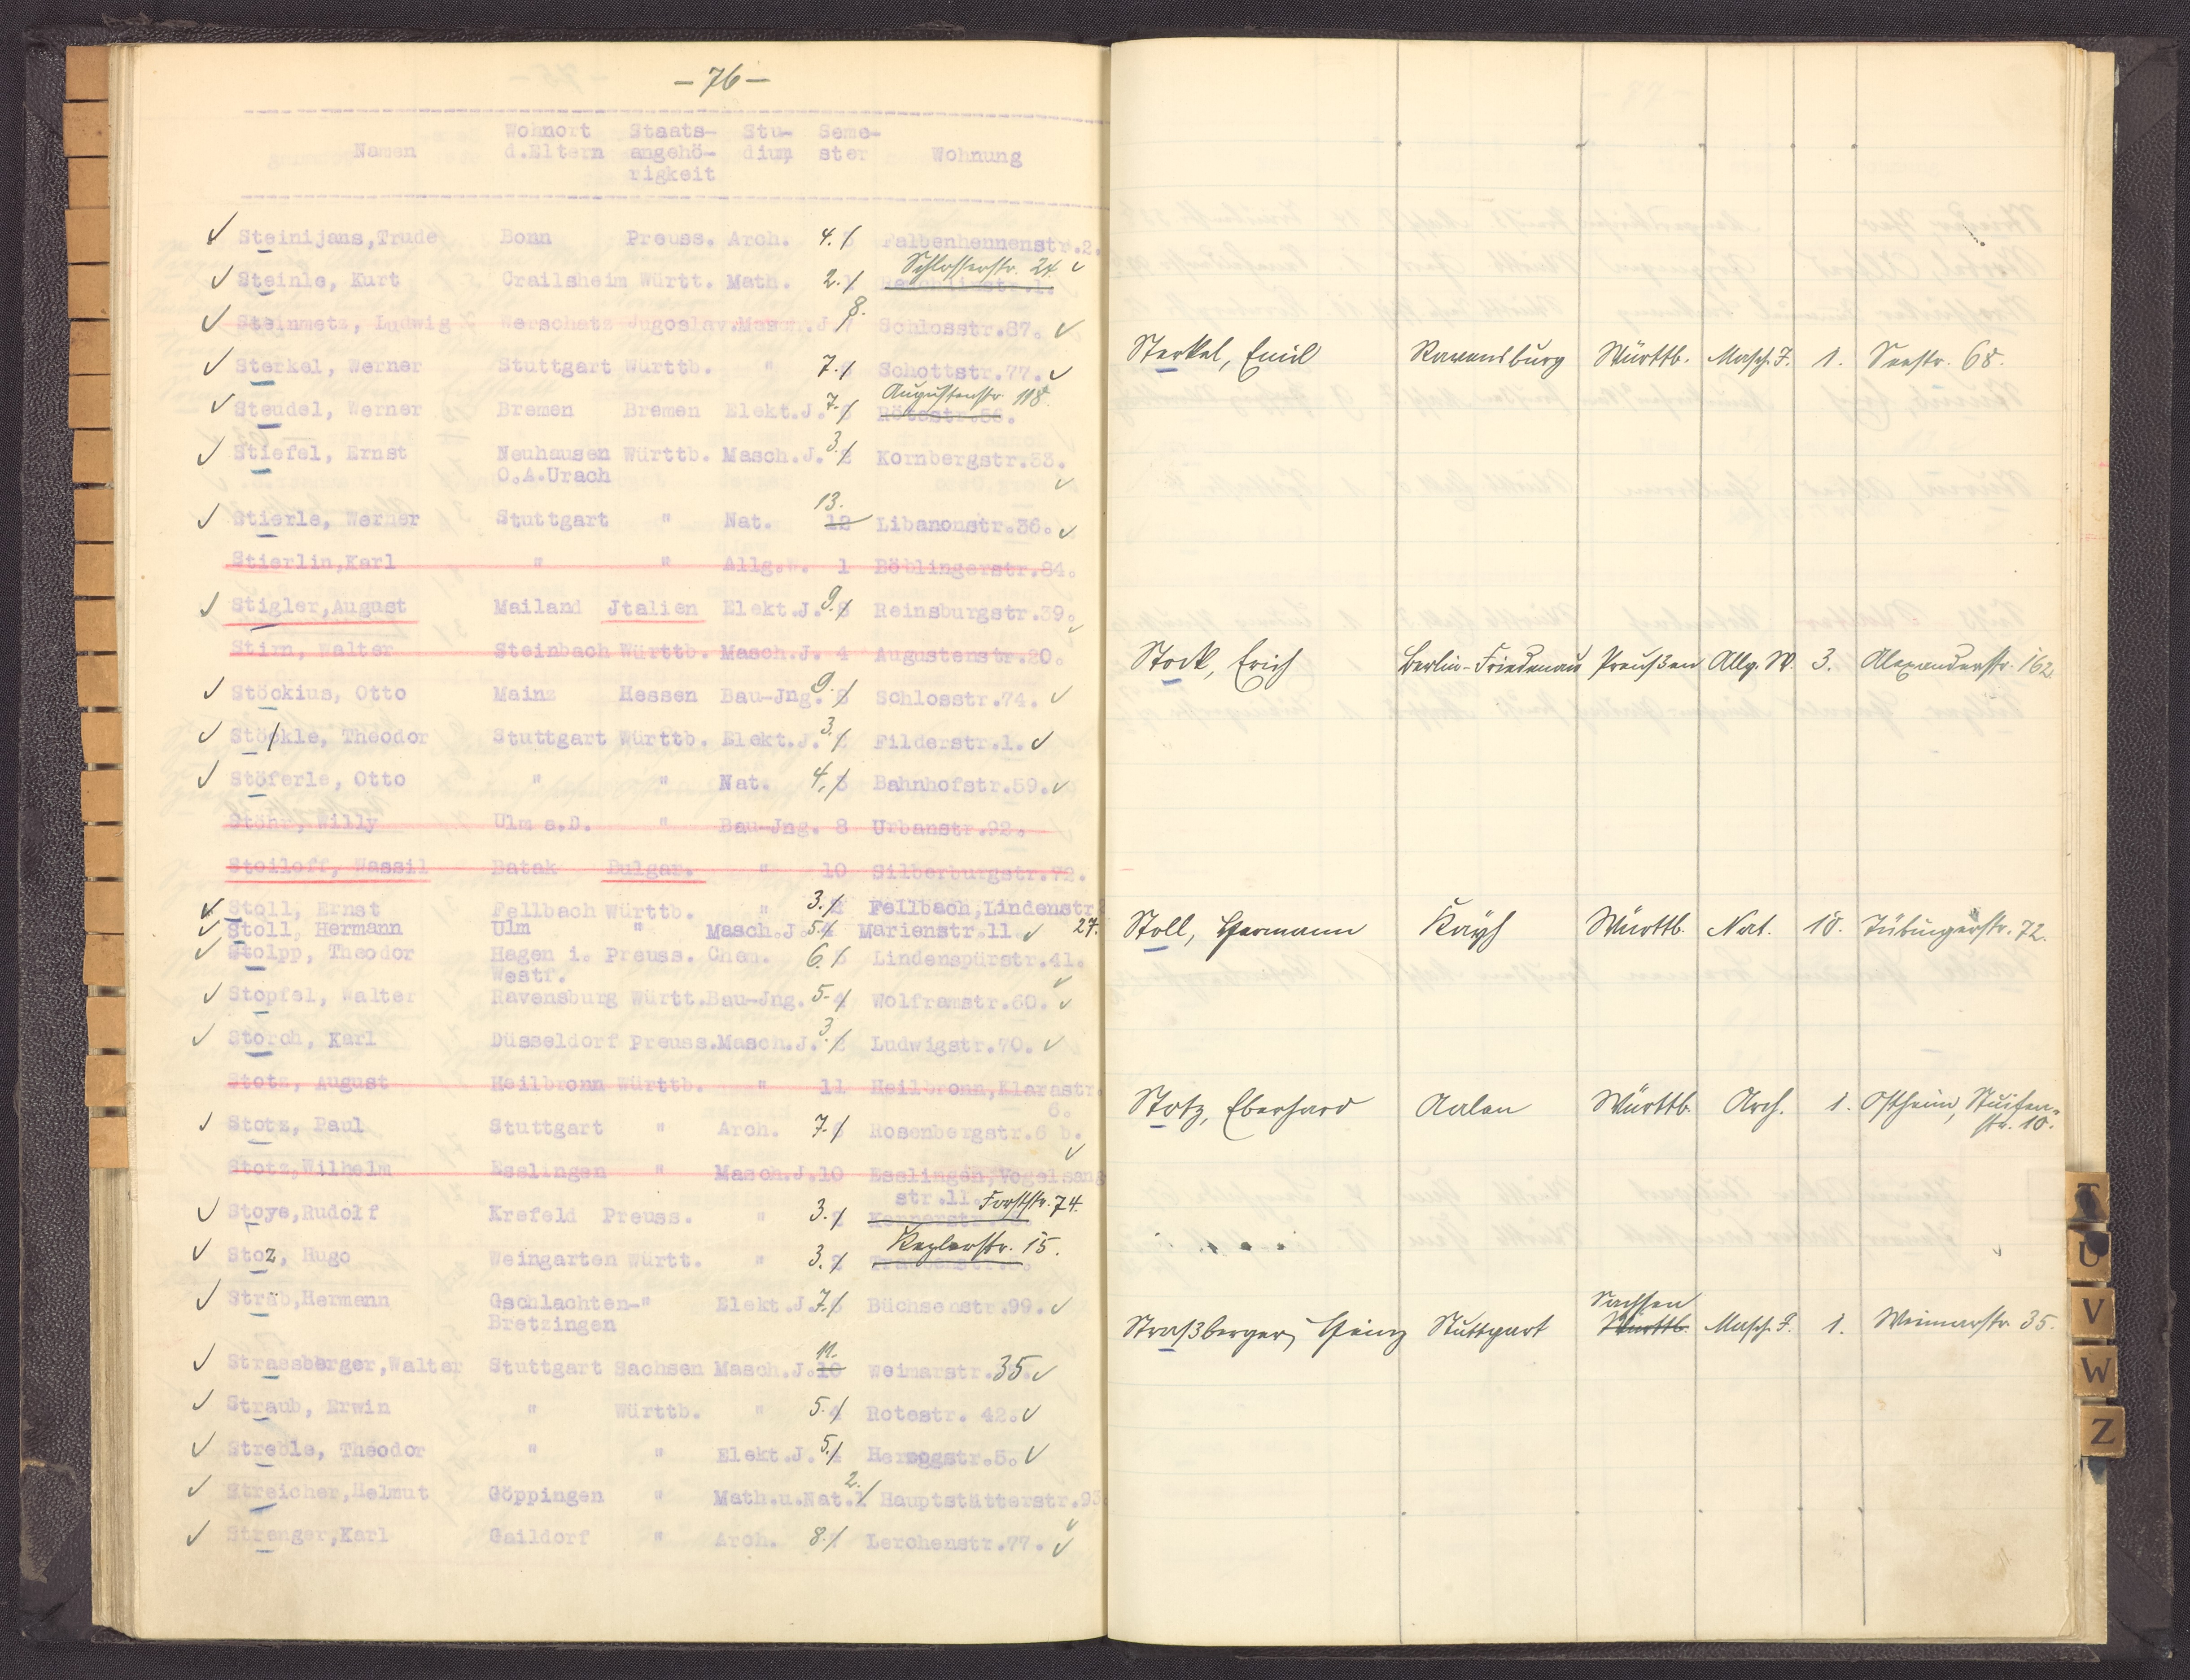 - 76 -
Namen Wohnort d.Eltern Staats-angehö-rigkeit Stu-dium Seme-ster Wohnung
Steinijans,Trude Bonn Preuss. Arch. 4. 3 Falbenhennenstr.2.
Schlosserstr. 24.
Steinle, Kurt Crailsheim Württ. Math. 2. 1
8.
Steinmetz, Ludwig Werschetz Jugoslav.Masch.J. 7 Schlosstr.87.
Sterkel, Werner Stuttgart Württb. " 7. Schottstr.77.
Augustenstr. 118.
Steudel, Werner Bremen Bremen Elekt.J. 7. Rötestr.56.
Stiefel, Ernst Neuhausen Württb. Masch.J. 3. 2 Kornbergstr.33.
O.A.Urach
13.
Stierle, Werner Stuttgart " Nat. 12 Libanonstr.36.
Stierlin,Karl " " Allg.W. 1 Böblingerstr.84.
Stigler,August Mailand Jtalien Elekt.J. 9. 8 Reinsburgstr.39.
Stirn, Walter Steinbach Württb. Masch.J. 4 Augustenstr.20.
Stöckius, Otto Mainz Hessen Bau-Jng. 9. 8 Schlosstr.74.
Stöckle, Theodor Stuttgart Württb. Elekt.J. 3. 2 Filderstr.1.
Stöferle, Otto " " Nat. 4. 3 Bahnhofstr.59.
Stöhr, Willy Ulm a.D. " Bau-Jng. 8 Urbanstr.92.
Stoiloff, Wassil Batak Bulgar. " 10 Silberburgstr.72.
Stoll, Ernst Fellbach Württb. " 3. 2 Fellbach,Lindenstr
27.
Stoll, Hermann Ulm " Masch.J. 5. 4 Marienstr.11
Stolpp, Theodor Hagen i. Preuss. Chem. 6. 5 Lindenspürstr.41.
Westf.
Stopfel, Walter Ravensburg Württ.Bau-Jng. 5. 4 Wolframstr.60.
Storch, Karl Düsseldorf Preuss.Masch.J. 3. 2 Ludwigstr.70.
Stotz, August Heilbronn Württb. " 11 Heilbronn,Klarastr.
6.
Stotz, Paul Stuttgart " Arch. 7. 6 Rosenbergstr.6 b.
Stotz,Wilhelm Esslingen " Masch.J.10 Esslingen,Vogelsang
str.11. Forststr. 74.
Stoye,Rudolf Krefeld Preuss. " 3. 2
Keplerstr. 15.
Stoz, Hugo Weingarten Württ. " 3. 2
Sträb,Hermann Gschlachten-" Elekt.J. 7. 6 Büchsenstr.99.
Bretzingen
11.
Strassberger,Walter Stuttgart Sachsen Masch.J.10 Weimarstr.35
Straub, Erwin " Württb. " 5. 4 Rotestr. 42.
Streble, Theodor " " Elekt.J. 5. 4 Herzogstr.5.
2.
Streicher,Helmut Göppingen " Math.u.Nat.1 Hauptstätterstr.93
Strenger,Karl Gaildorf " Arch. 8. 7 Lerchenstr.77.
Sterkel, Emil Ravensburg Württb. Masch.J. 1. Seestr. 68.
Stock, Erich Berlin-Friedenau Preußen Allg. W. 3. Alexanderstr. 162.
Stoll, Hermann Kayh Württb. Nat. 10. Tübingerstr. 72.
Stotz, Eberhard Aalen Württb. Arch. 1. Ostheim, Stuifen-
str. 10.
Sachsen
Straßberger, Heinz Stuttgart Württb. Masch.J. 1. Weimarstr. 35.
T
U
V
W
Z